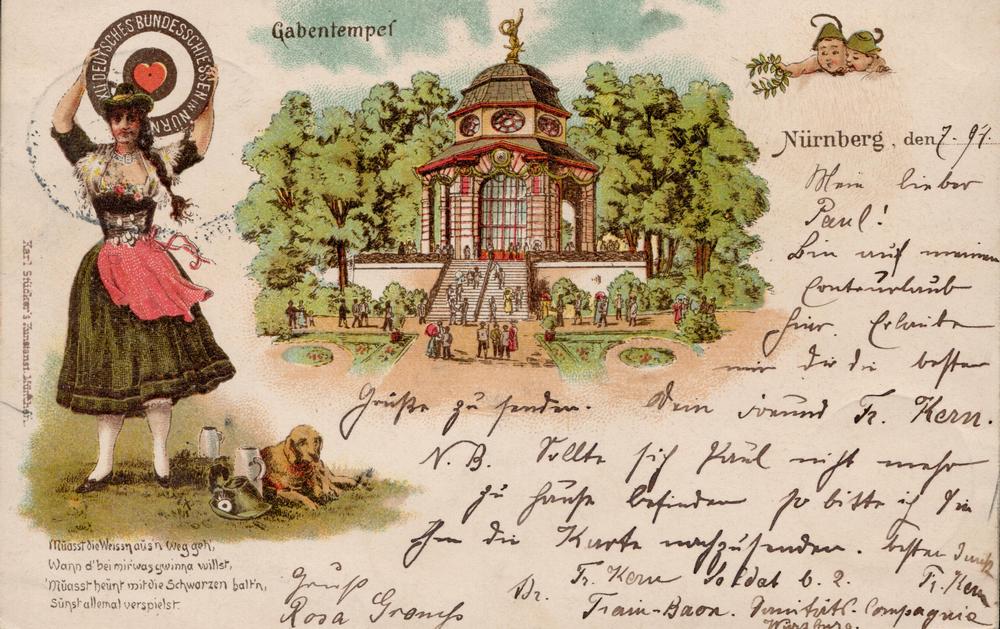 XII DEUTSCHES BUNDESSCHIESSEN IN NÜRN
Gabentempel
Nürnberg, den 7. 97.
Mein lieber
Paul!
Bin auf meinem
hier. Erlaube
mir dir die besten
Grüße zu senden. Dein Freund Fr. Kern.
N. B. Sollte sich Paul nicht mehr
zu Hause befinden so bitte ich Sie
Ihm die Karte nachzusenden. besten Dank
Fr. Kern
Fr. Kern Soldat b. 2.
Train-Baon. Sanitäts-Compagnie
Würzburg.
Gruß
Rosa
Müasst die Weissn aus'n Weg geh',
Wann d' bei mir was gwinna willst,
Müasst heunt mit die Schwarzen halt'n,
Sünst allemal verspielst.